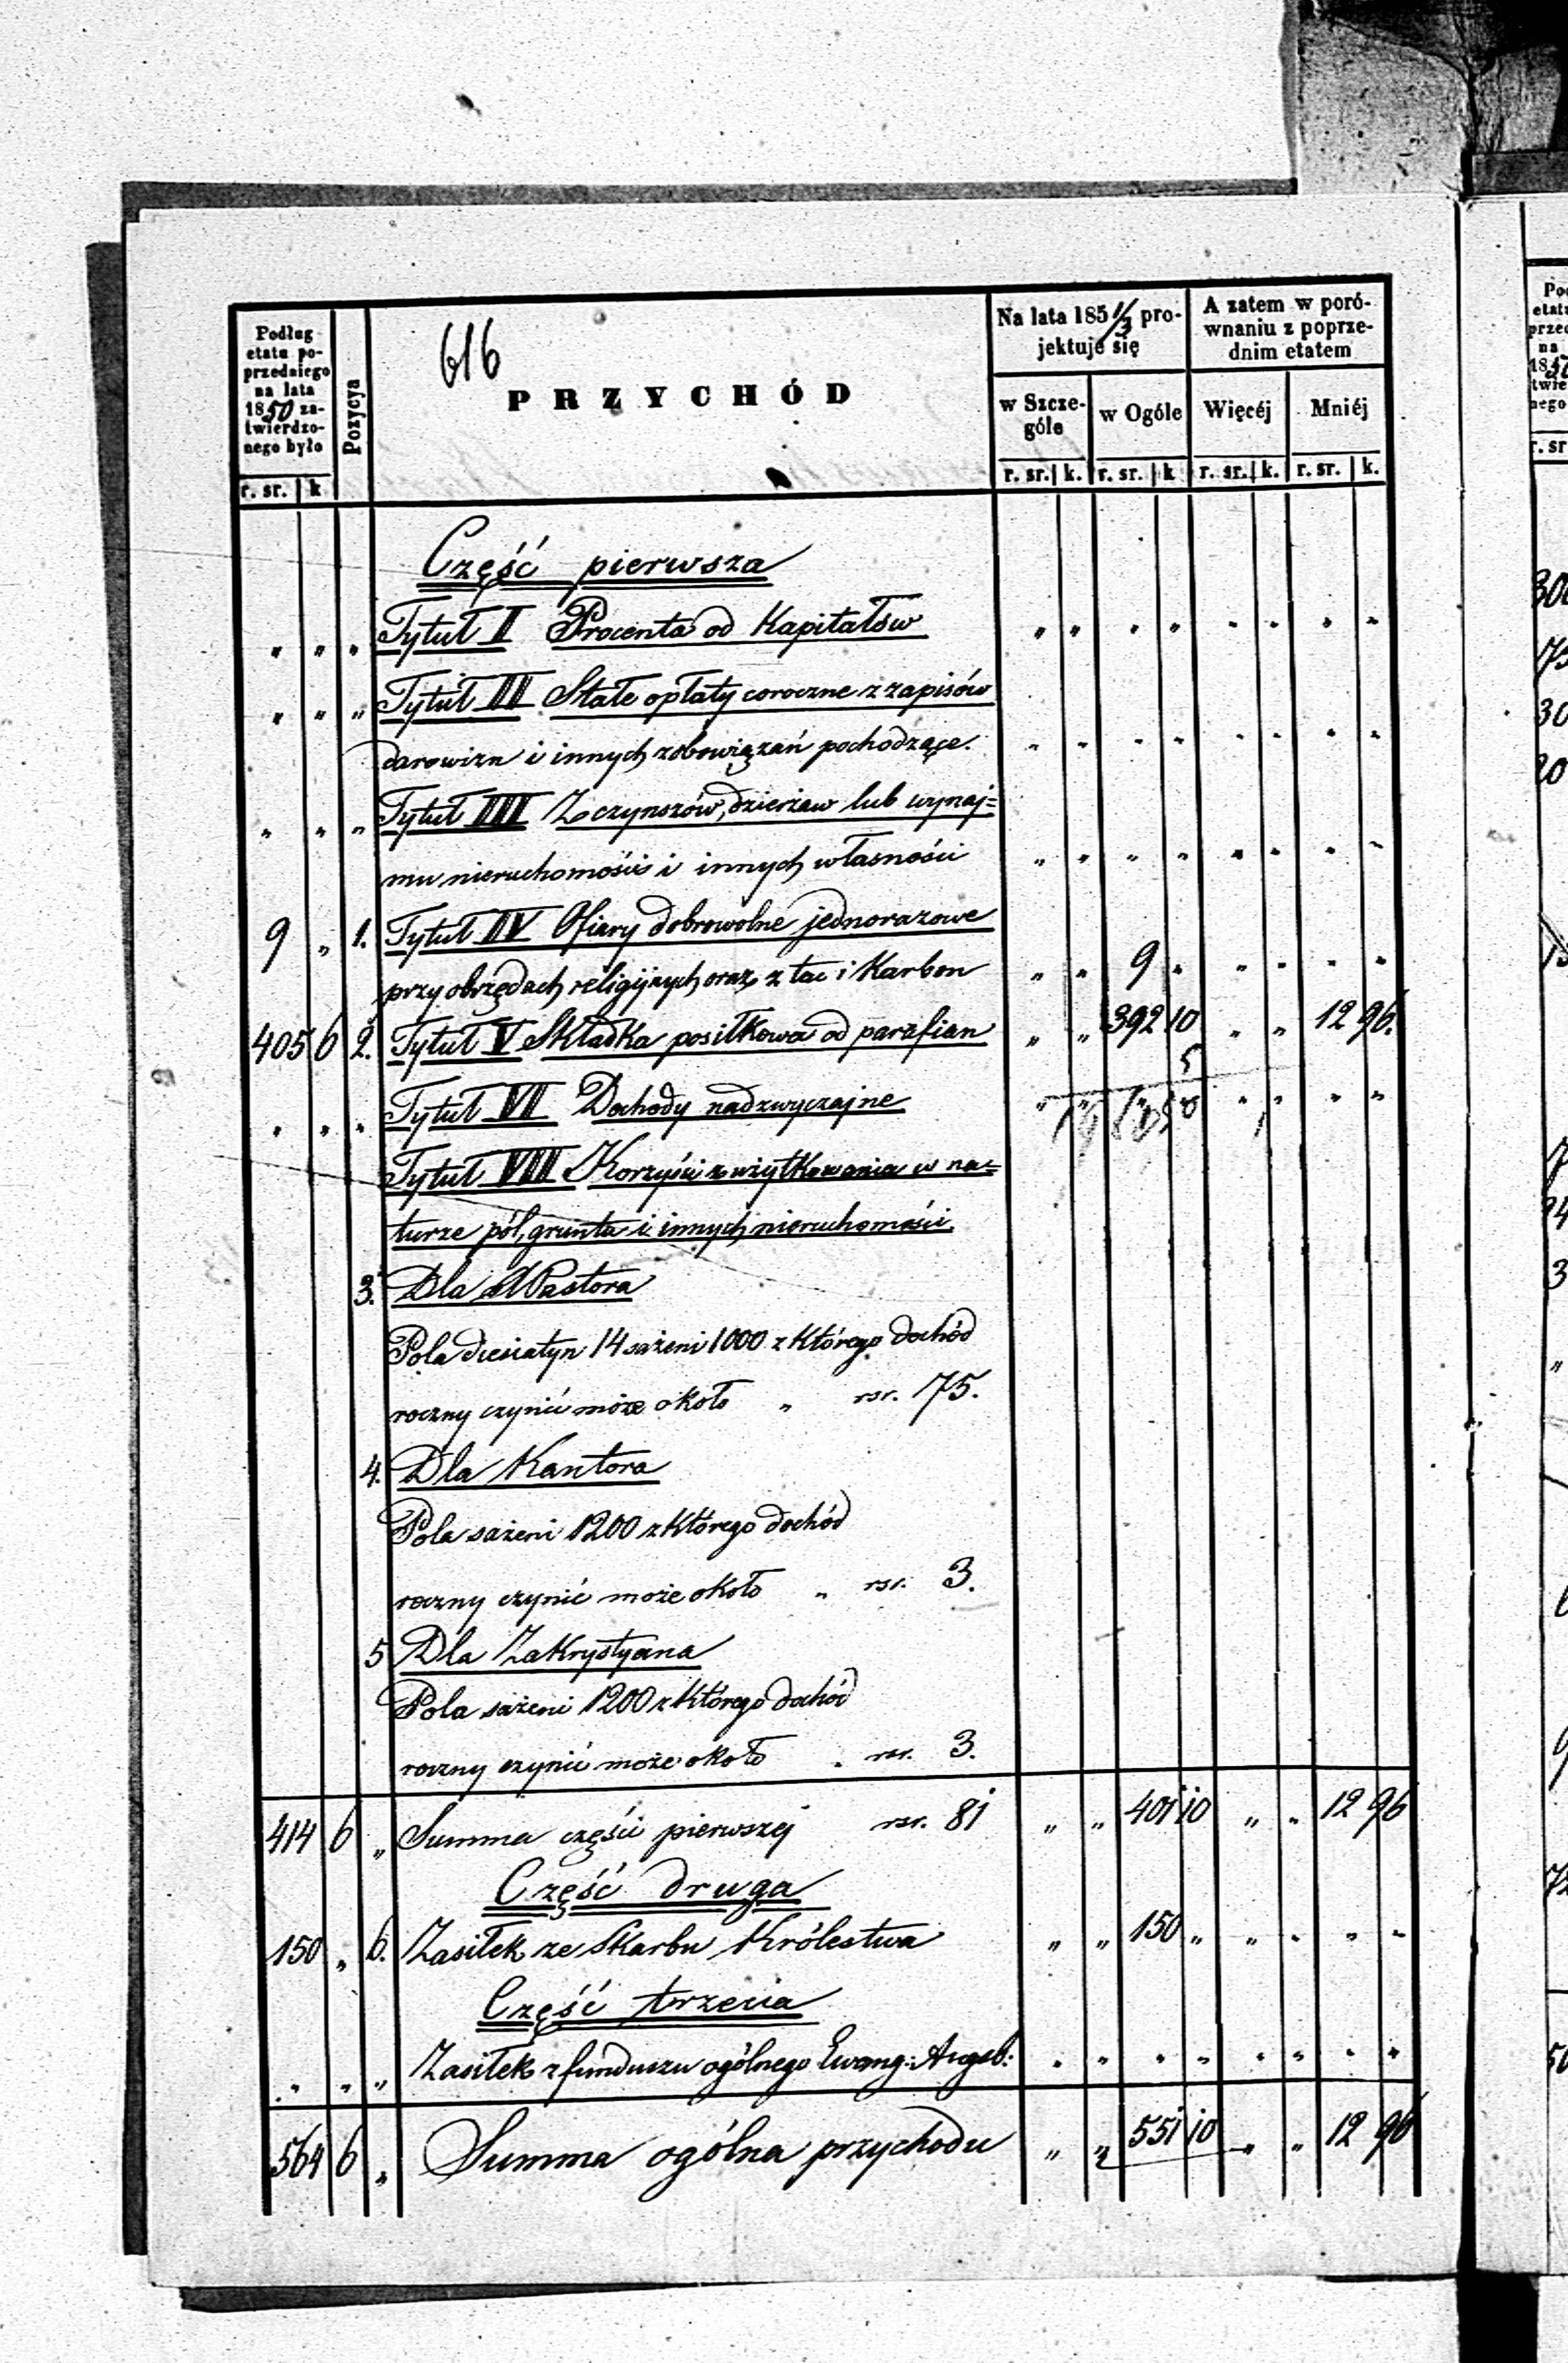 616
PRZYCHÓD
Podług etatu poprzedniego na lata 1850 zatwierdzonego było
Pozycya
Na lata 185 1/3 projektuje się
A zatem w porównaniu z poprzednim etatem
w Szczególe
w Ogóle
Więcéj
Mniéj
r. sr. k
r. sr. k. r. sr. k r. sr. k. r. sr. k.
Część pierwsza
" " " Tytuł I Procenta od Kapitałów " " " " " " " "
" " " Tytuł II Stałe opłaty coroczne z zapisów
darowizn i innych zobowiązań pochodzące. " " " " " " " "
" " " Tytuł III Z czynszów, dzierżaw lub wynaj=
mu nieruchomości i innych własności " " " " " " " "
9 " 1. Tytuł IV Ofiary dobrowolne jednorazowe
przy obrzędach religijnych oraz z tac i Karbon " " 9 " " " " "
405 6 2. Tytuł V Składka posiłkowa od parafian " " 392 10 " " 12 96.
" " " Tytuł VI Dochody nadzwyczajne " " " " " " " "
Tytuł VII Korzyści z użytkowania w na=
turze pól, grunta i innych nieruchomości
3. Dla Pastora
Pola diesiatyn 14 sążeni 1000 z którego dochód
roczny czynić może około " rsr. 75.
4. Dla Kantora
Pola sążeni 1200 z którego dochód
roczny czynić może około " rsr. 3.
5 Dla Zakrystyana
Pola sążeni 1200 z którego dochód
roczny czynić może około " rsr. 3.
414 6 " Summa części pierwszej rsr. 81 " " 401 10 " " 12 96
Część druga
150 " 6. Zasiłek ze Skarbu Królestwa " " 150 " " " " "
Część trzecia
" " " Zasiłek z funduszu ogólnego Ewang: Augsb: " " " " " " " "
564 6 " Summa ogólna przychodu " " 551 10 " " 12 96